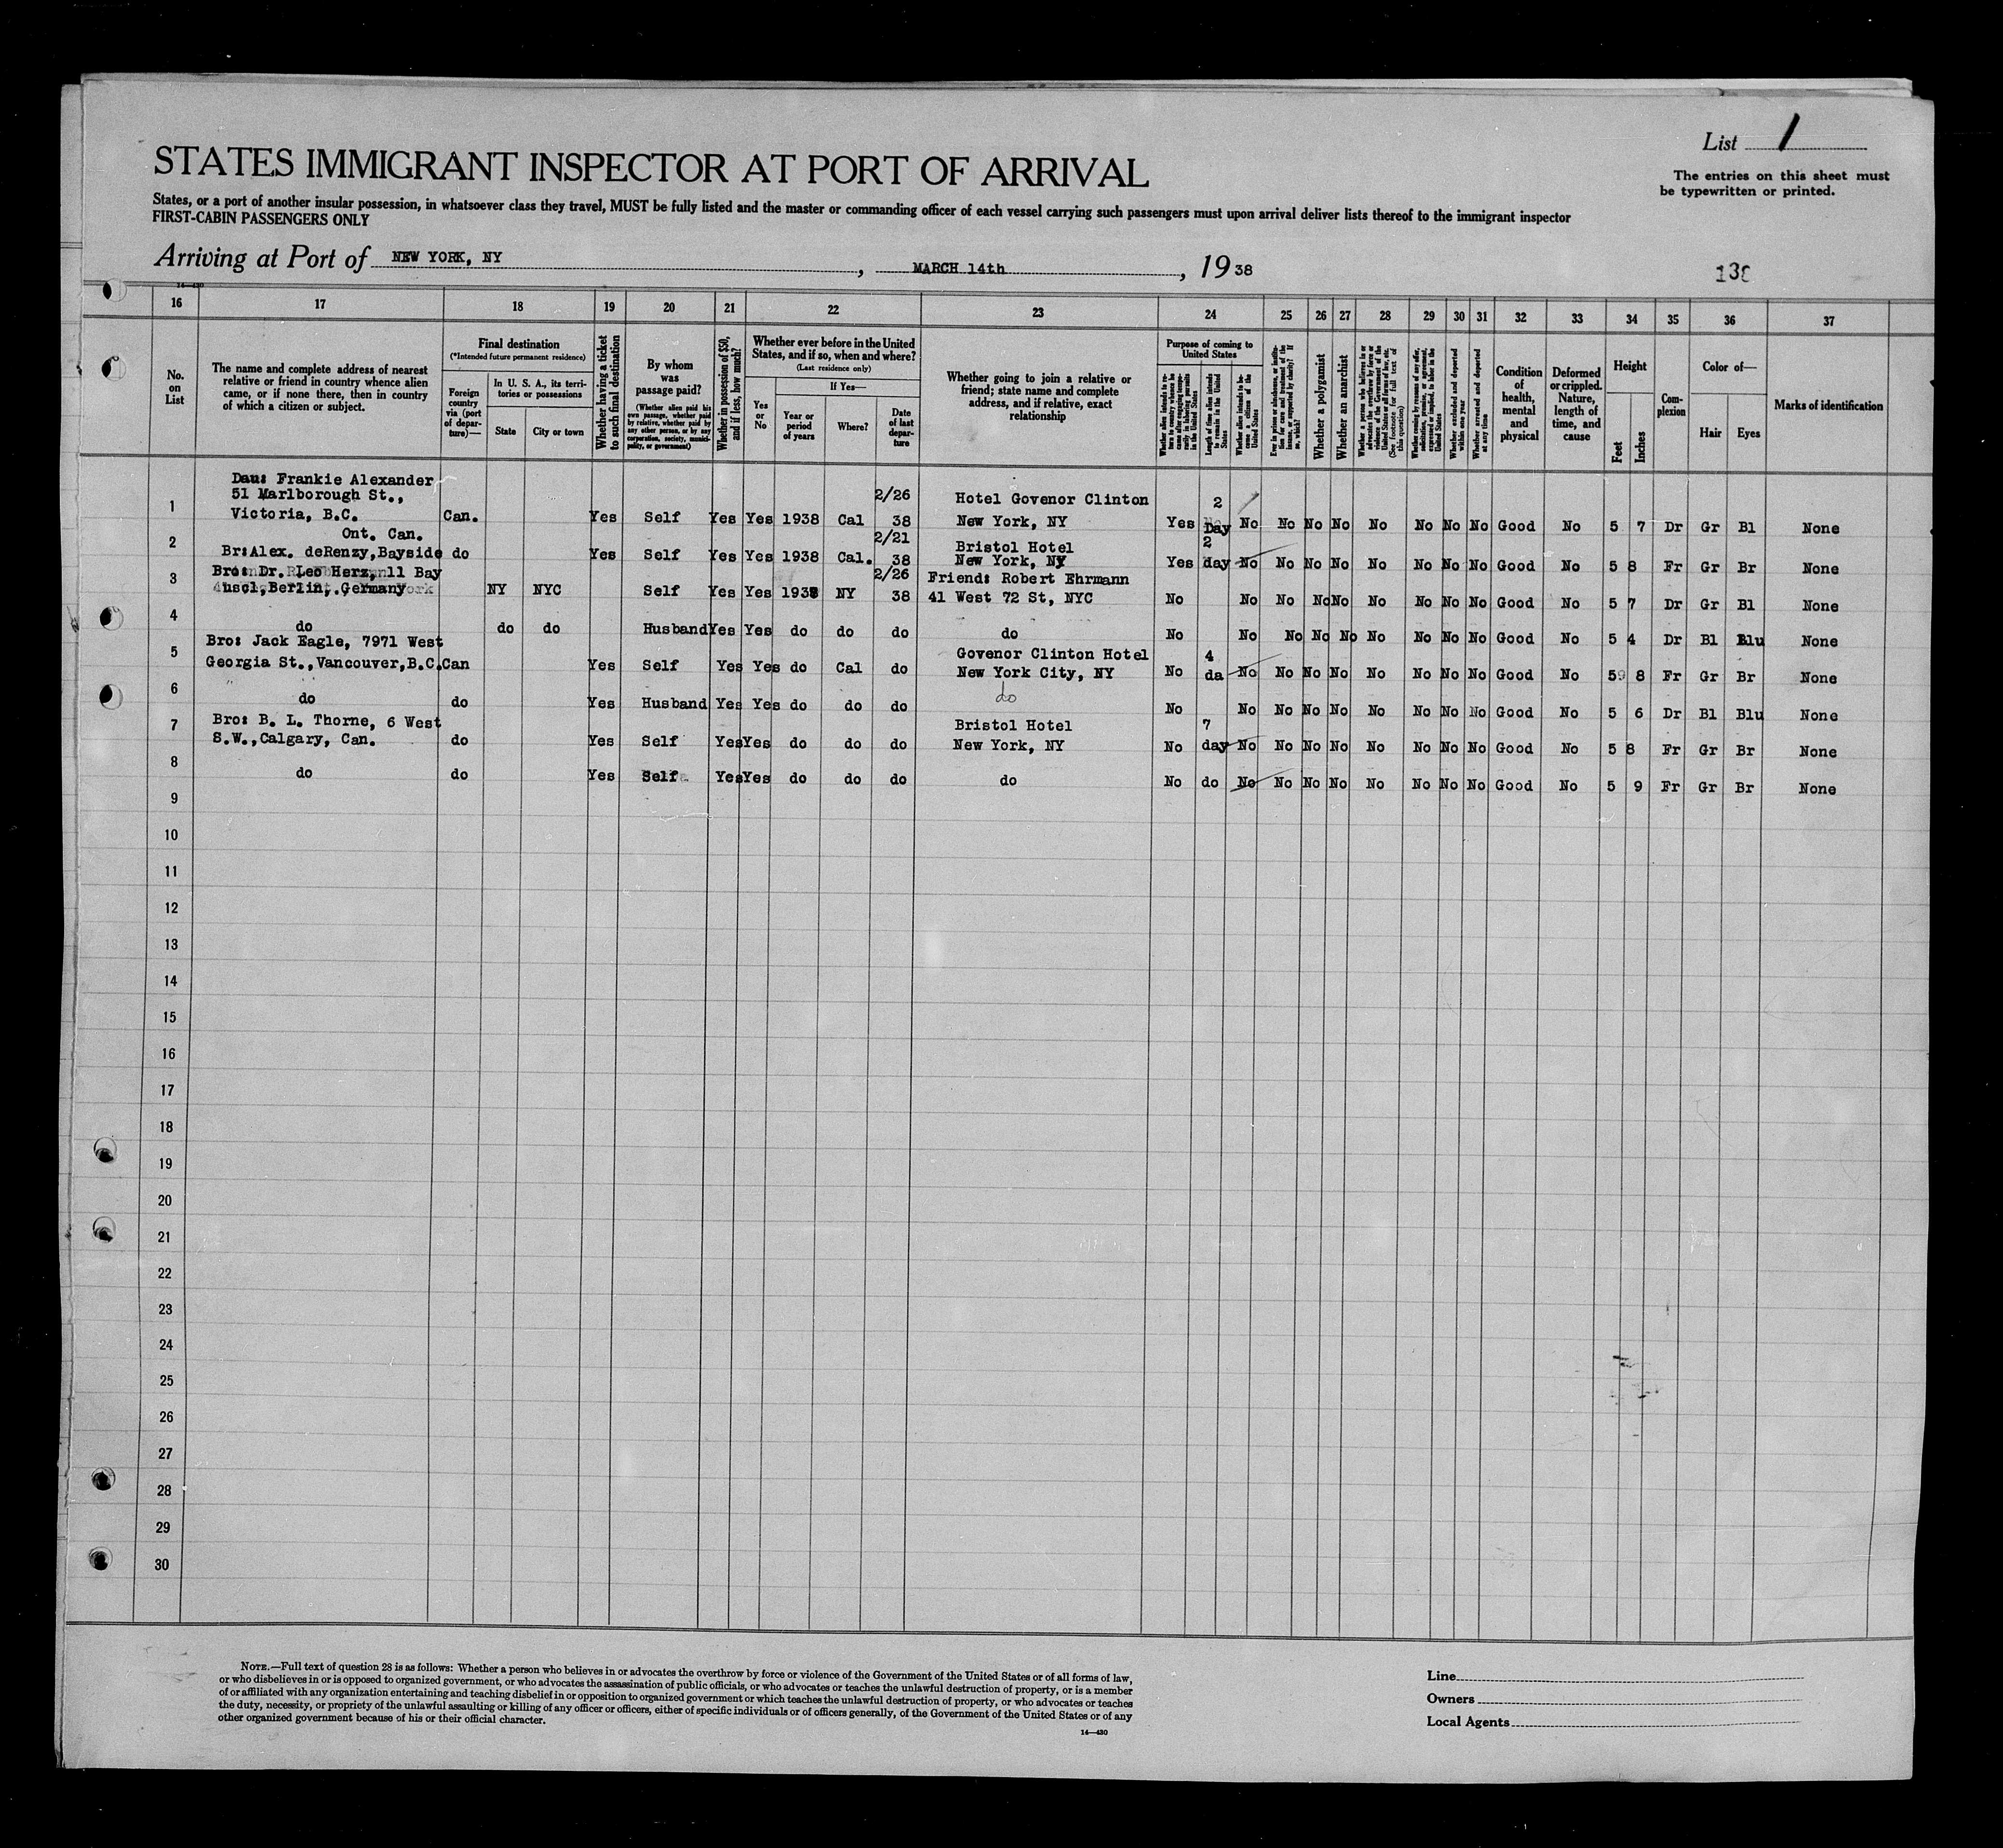 List 1
STATES IMMIGRANT INSPECTOR AT PORT OF ARRIVAL
The entries on this sheet must
be typewritten or printed.
States, or a port of another insular possession, in whatsoever class they travel, MUST be fully listed and the master or commanding officer of each vessel carrying such passengers must upon arrival deliver lists thereof to the immigrant inspector
FIRST-CABIN PASSENGERS ONLY
Arriving at Port of NEW YORK, NY, MARCH 14th, 1938
16 17 18 19 20 21 22 23 24 25 26 27 28 29 30 31 32 33 34 35 36 37
No.
on
List
The name and complete address of nearest
relative or friend in country whence alien
came, or if none there, then in country
of which a citizen or subject.
Final destination
(*Intended future permanent residence)
Foreign
country
via (port
of depar-
ture)—
In U. S. A., its terri-
tories or possessions
State
City or town
Whether having a ticket
to such final destination
By whom
was
passage paid?
(Whether alien paid his
own passage, whether paid
by relative, whether paid by
any other person, or by any
corporation, society, munici-
pality, or government)
Whether in possession of $50,
and if less, how much?
Whether ever before in the United
States, and if so, when and where?
(Last residence only)
Yes
or
No
If Yes—
Year or
period
of years
Where?
Date
of last
depar-
ture
Whether going to join a relative or
friend; state name and complete
address, and if relative, exact
relationship
Purpose of coming to
United States
Length of time alien intends
to remain in the United
States
Whether alien intends to be-
come a citizen of the
United States
Whether a polygamist
Whether an anarchist
(See footnote for full text of
this question)
Whether excluded and deported
within one year
Whether arrested and deported
at any time
Condition
of
health,
mental
and
physical
Deformed
or crippled.
Nature,
length of
time, and
cause
Height
Feet
Inches
Com-
plexion
Color of—
Hair
Eyes
Marks of identification
Dau: Frankie Alexander
51 Marlborough St., 2/26 Hotel Govenor Clinton 2
1 Victoria, B.C. Can. Yes Self Yes Yes 1938 Cal 38 New York, NY Yes Day No No No No No No No No Good No 5 7 Dr Gr Bl None
Ont. Can. 2/21 Bristol Hotel 2
2 Br:Alex. deRenzy,Bayside do Yes Self Yes Yes 1938 Cal. 38 New York, NY Yes day No No No No No No No No Good No 5 8 Fr Gr Br None
Bro: Dr. Leo Herz, 11 Bay 2/26 Friend: Robert Ehrmann
3 Berlin, Germany NY NYC Self Yes Yes 1938 NY 38 41 West 72 St, NYC No No No No No No No No No Good No 5 7 Dr Gr Bl None
4 do do do Husband Yes Yes do do do do No No No No No No No No No Good No 5 4 Dr Bl Blu None
Bro: Jack Eagle, 7971 West Govenor Clinton Hotel 4
5 Georgia St.,Vancouver,B.C.Can Yes Self Yes Yes do Cal do New York City, NY No da No No No No No No No No Good No 5 8 Fr Gr Br None
6 do do Yes Husband Yes Yes do do do do No No No No No No No No No Good No 5 6 Dr Bl Blu None
Bro: B. L. Thorne, 6 West Bristol Hotel 7
7 S.W.,Calgary, Can. do Yes Self Yes Yes do do do New York, NY No day No No No No No No No No Good No 5 8 Fr Gr Br None
8 do do Yes Self Yes Yes do do do do No do No No No No No No No No Good No 5 9 Fr Gr Br None
9
10
11
12
13
14
15
16
17
18
19
20
21
22
23
24
25
26
27
28
29
30
NOTE.—Full text of question 28 is as follows: Whether a person who believes in or advocates the overthrow by force or violence of the Government of the United States or of all forms of law,
or who disbelieves in or is opposed to organized government, or who advocates the assassination of public officials, or who advocates or teaches the unlawful destruction of property, or is a member
of or affiliated with any organization entertaining and teaching disbelief in or opposition to organized government or which teaches the unlawful destruction of property, or who advocates or teaches
the duty, necessity, or propriety of the unlawful assaulting or killing of any officer or officers, either of specific individuals or of officers generally, of the Government of the United States or of any
other organized government because of his or their official character.
14—430
Line
Owners
Local Agents